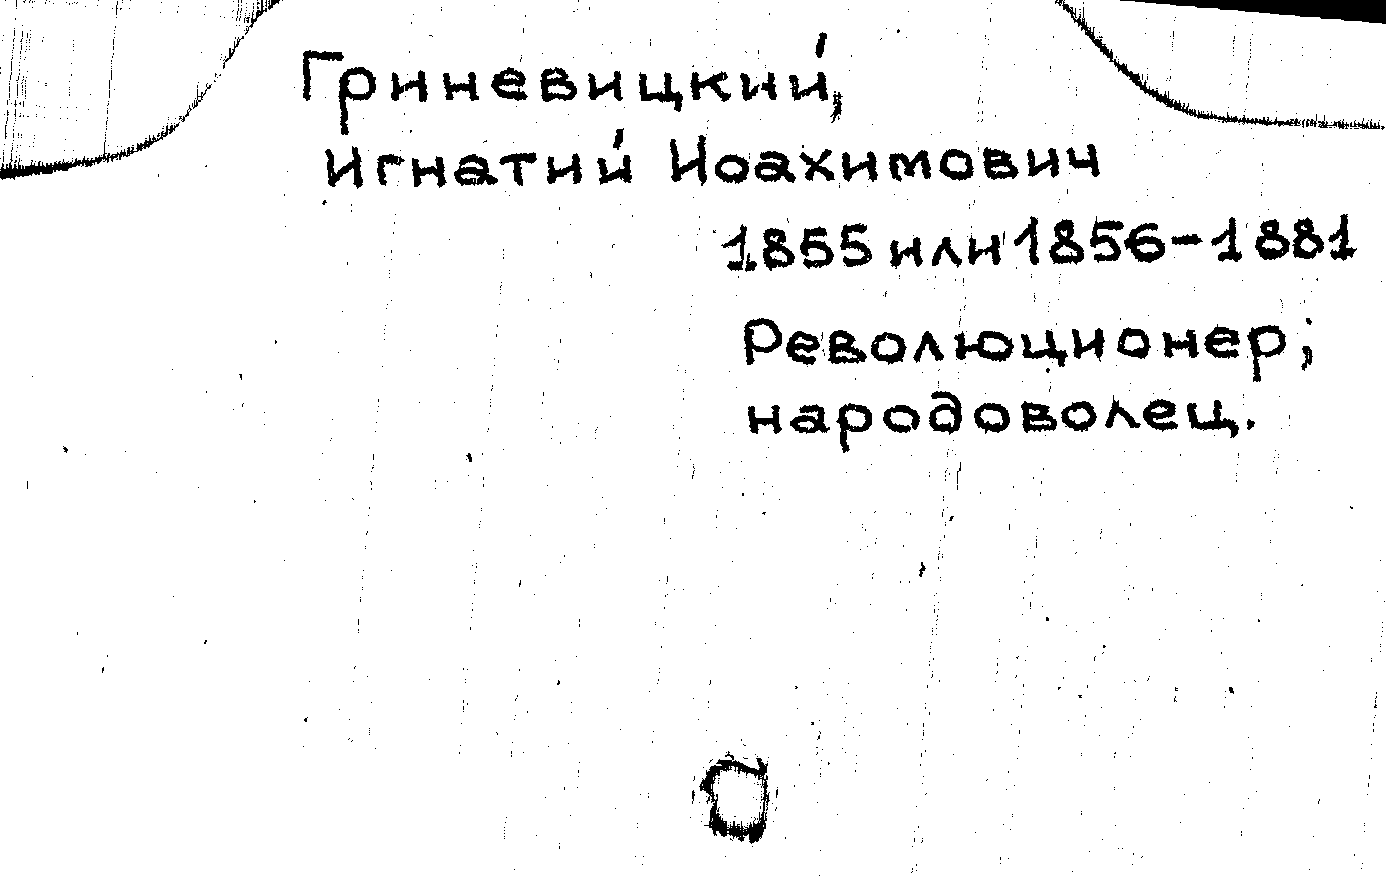 Гриневицкий,
Игнатий Иоахимович
1855 или 1856-1881
Революционер;
народоволец.